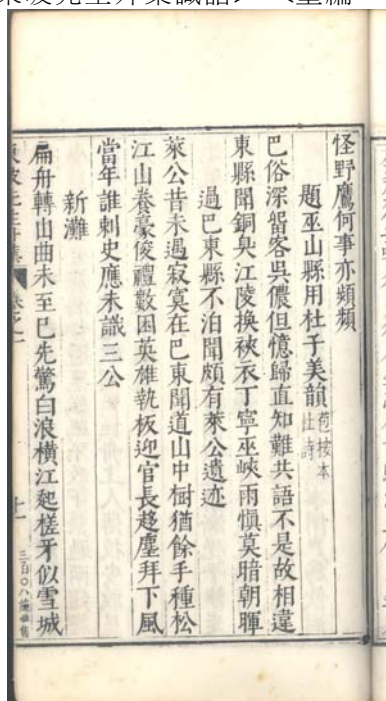 東坡先生外集識語
怪野鷹何事亦頻頻
題巫山縣用杜子美韻苞按本杜詩
巴俗深留客吳儂但憶歸直知難共語不是故相違
東縣聞銅臭江陵換裌衣丁寧巫峽雨慎莫暗朝暉
過巴東縣不泊聞頗有萊公遺迹
萊公昔未遇寂寞在巴東聞道山中樹猶餘手種松
江山養豪俊禮數困英雄執板迎官長趍塵拜下風
當年誰刺史應未識三公
新灘
扁舟轉山曲未至已先驚白浪橫江起槎牙似雪城
東坡先生外集
卷之一
十一